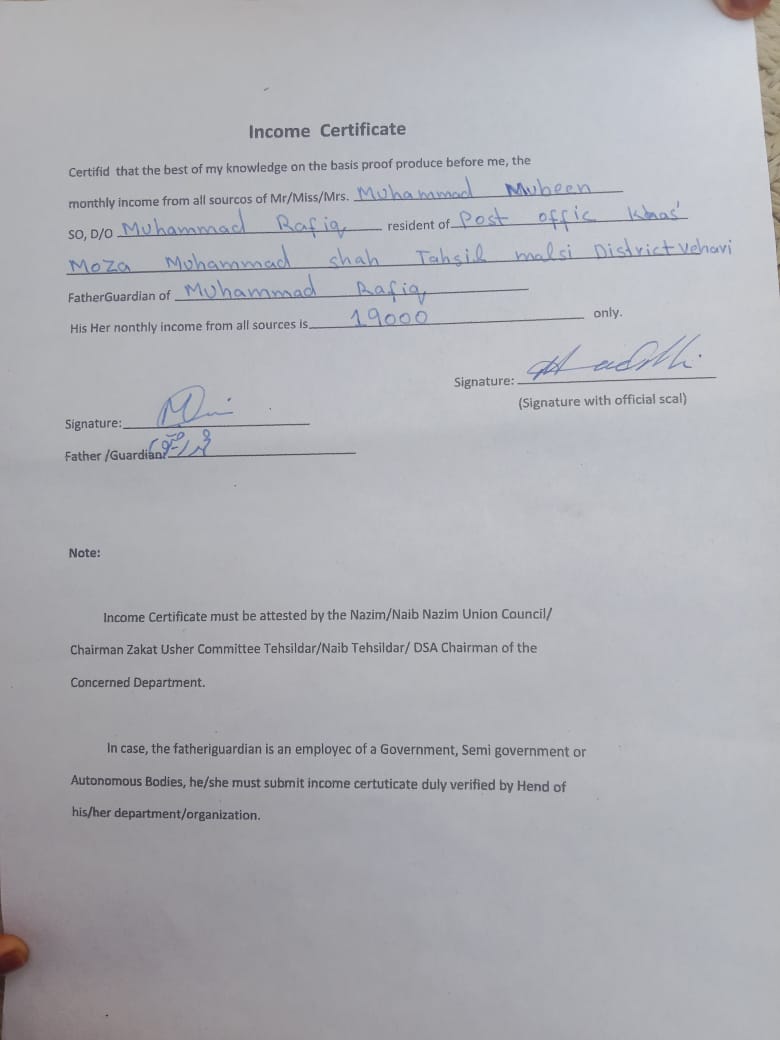 Income Certificate
Certifid that the best of my knowledge on the basis proof produce before me, the
monthly income from all sourcos of Mr/Miss/Mrs. Muhammad Mubeen
SO, D/O Muhammad Rafiq resident of Post offic khas'
Moza Muhammad shah Tahsil malsi District vehavi
FatherGuardian of Muhammad Rafiq
His Her nonthly income from all sources is 19000 only.
Signature:
(Signature with official scal)
Signature:
Father /Guardian:
Note:
Income Certificate must be attested by the Nazim/Naib Nazim Union Council/
Chairman Zakat Usher Committee Tehsildar/Naib Tehsildar/ DSA Chairman of the
Concerned Department.
In case, the fatheriguardian is an employec of a Government, Semi government or
Autonomous Bodies, he/she must submit income certuticate duly verified by Hend of
his/her department/organization.